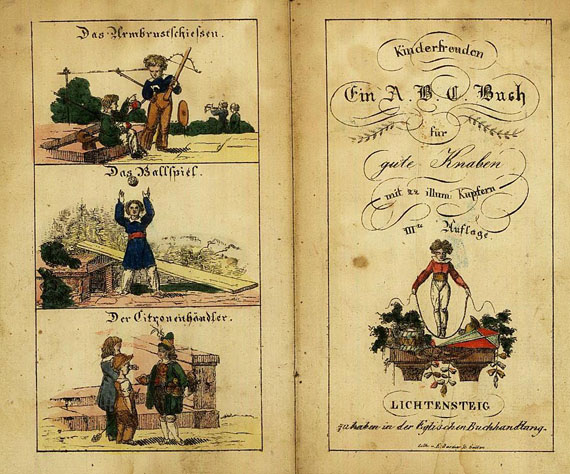 Das Armbrustschiessen.
Das Ballspiel.
Der Citronenhändler.
Kinderfreuden
Ein A. B. C. Buch
für
gute Knaben
mit 22 illum: Kupfern
IIIte Auflage.
LICHTENSTEIG
zu haben in der Eglischen Buchhandlung.